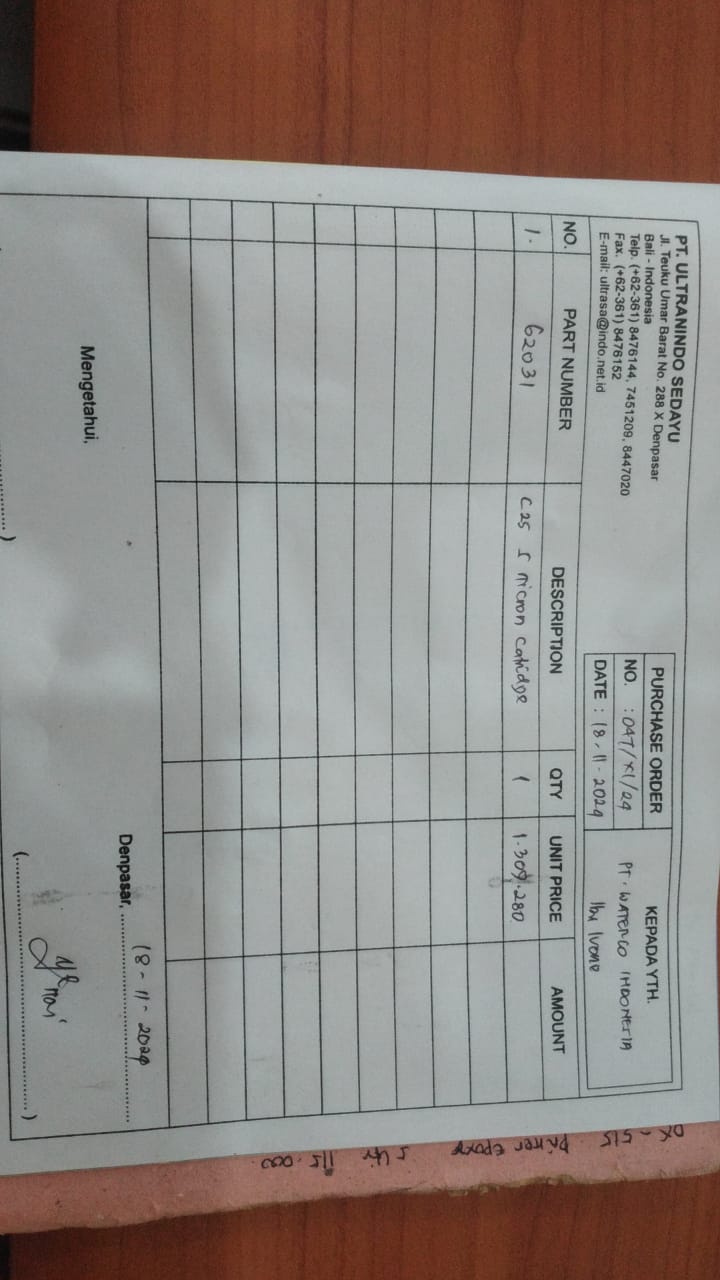 PT. ULTRANINDO SEDAYU
Jl. Teuku Umar Barat No. 288 X Denpasar
Bali - Indonesia
Telp. (+62-361) 8476144, 7451209, 8447020
Fax. (+62-361) 8476152
E-mail: ultrasa@indo.net.id
PURCHASE ORDER
NO. : 047/XI/24
DATE : 18-11-2024
KEPADA YTH.
PT. WATERCO INDONESIA
Ibu Ivone
NO. PART NUMBER DESCRIPTION QTY UNIT PRICE AMOUNT
1. 62031 C25 5 micron Catridge 1 1.309.280
Denpasar, 18-11-2024
Mengetahui,
(....................)
(....................)
115.000